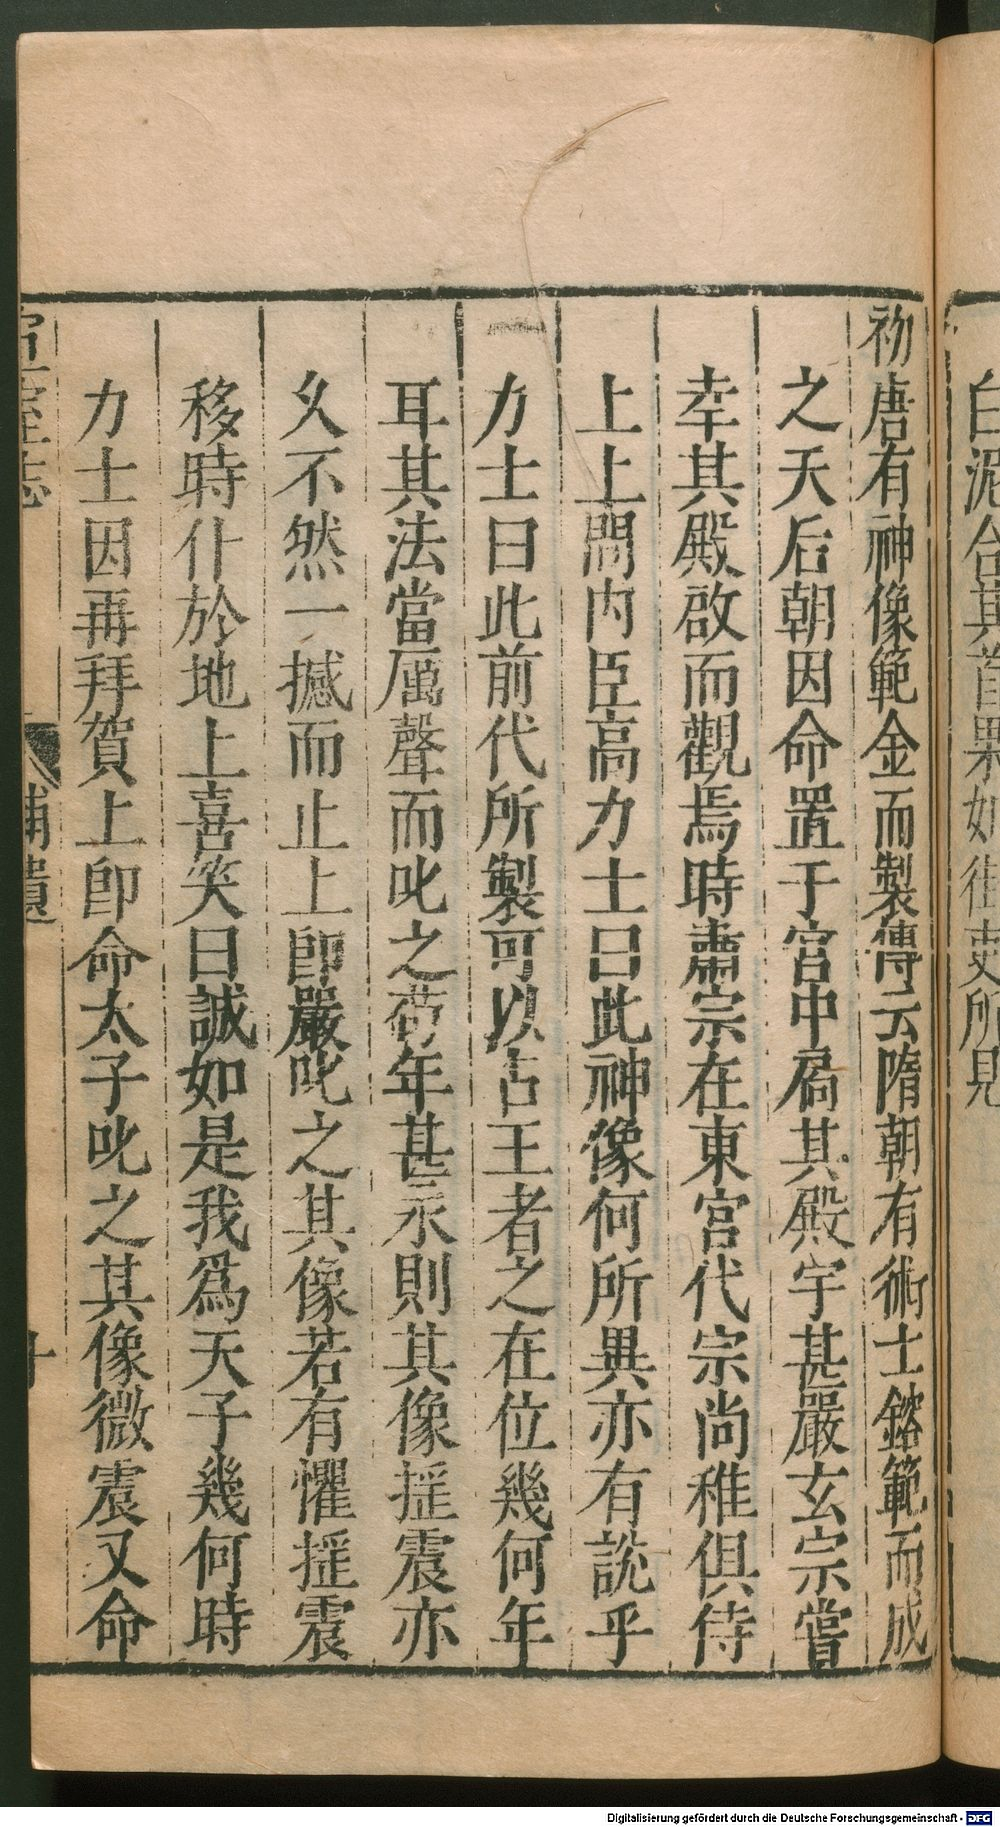 白泥合其首果如往吏所見
初唐有神像範金而製傳云隋朝有術士鎔範而成
之天后朝因命置于宮中扃其殿宇甚嚴玄宗嘗
幸其殿啟而觀焉時肅宗在東宮代宗尚稚俱侍
上上問內臣高力士曰此神像何所異亦有說乎
力士曰此前代所製可以占王者之在位幾何年
耳其法當厲聲而叱之苟年甚永則其像搖震亦
久不然一撼而止上卽嚴叱之其像若有懼搖震
移時仆於地上喜笑曰誠如是我爲天子幾何時
力士因再拜賀上卽命太子叱之其像微震又命
宣室志 補遺 十
Digitalisierung gefördert durch die Deutsche Forschungsgemeinschaft - DFG